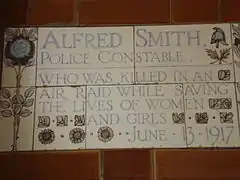 ALFRED SMITH
POLICE CONSTABLE
WHO WAS KILLED IN AN
AIR RAID WHILE SAVING
THE LIVES OF WOMEN
AND GIRLS
JUNE 13 1917